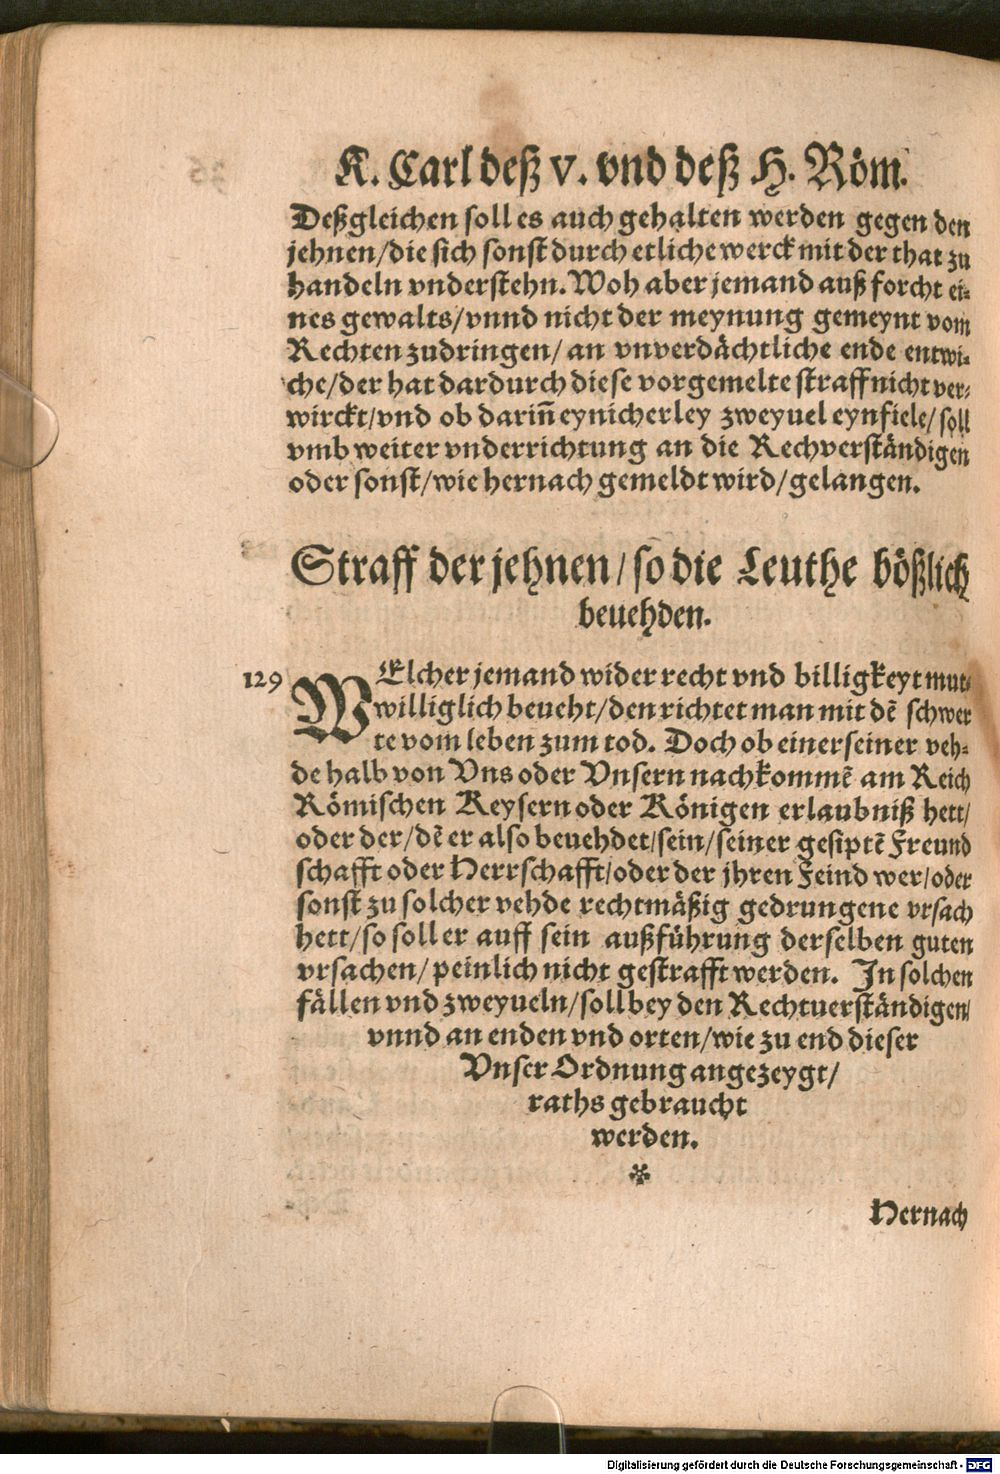 K. Carl deß v. vnd deß H. Röm.
Deßgleichen soll es auch gehalten werden gegen den
jehnen/die sich sonst durch etliche werck mit der that zu
handeln vnderstehn. Woh aber jemand auß forcht ei-
nes gewalts/vnnd nicht der meynung gemeynt vom
Rechten zudringen/ an vnverdächtliche ende entwi-
che/der hat dardurch diese vorgemelte straff nicht ver-
wirckt/vnd ob dariñ eynicherley zweyuel eynfiele/soll
vmb weiter vnderrichtung an die Rechverständigen
oder sonst/wie hernach gemeldt wird/gelangen.
Straff der jehnen/so die Leuthe bößlich
beuehden.
129 WElcher jemand wider recht vnd billigkeyt mut-
williglich beueht/den richtet man mit dẽ schwer
te vom leben zum tod. Doch ob einer seiner veh-
de halb von Vns oder Vnsern nachkommẽ am Reich
Römischen Keysern oder Königen erlaubniß hett/
oder der/dẽ er also beuehdet/sein/seiner gesiptẽ Freund
schafft oder Herrschafft/oder der jhren Feind wer/oder
sonst zu solcher vehde rechtmäßig gedrungene vrsach
hett/so soll er auff sein außführung derselben guten
vrsachen/peinlich nicht gestrafft werden. In solchen
fällen vnd zweyueln/soll bey den Rechtuerständigen/
vnnd an enden vnd orten/wie zu end dieser
Vnser Ordnung angezeygt/
raths gebraucht
werden.
*
Hernach
Digitalisierung gefördert durch die Deutsche Forschungsgemeinschaft - DFG